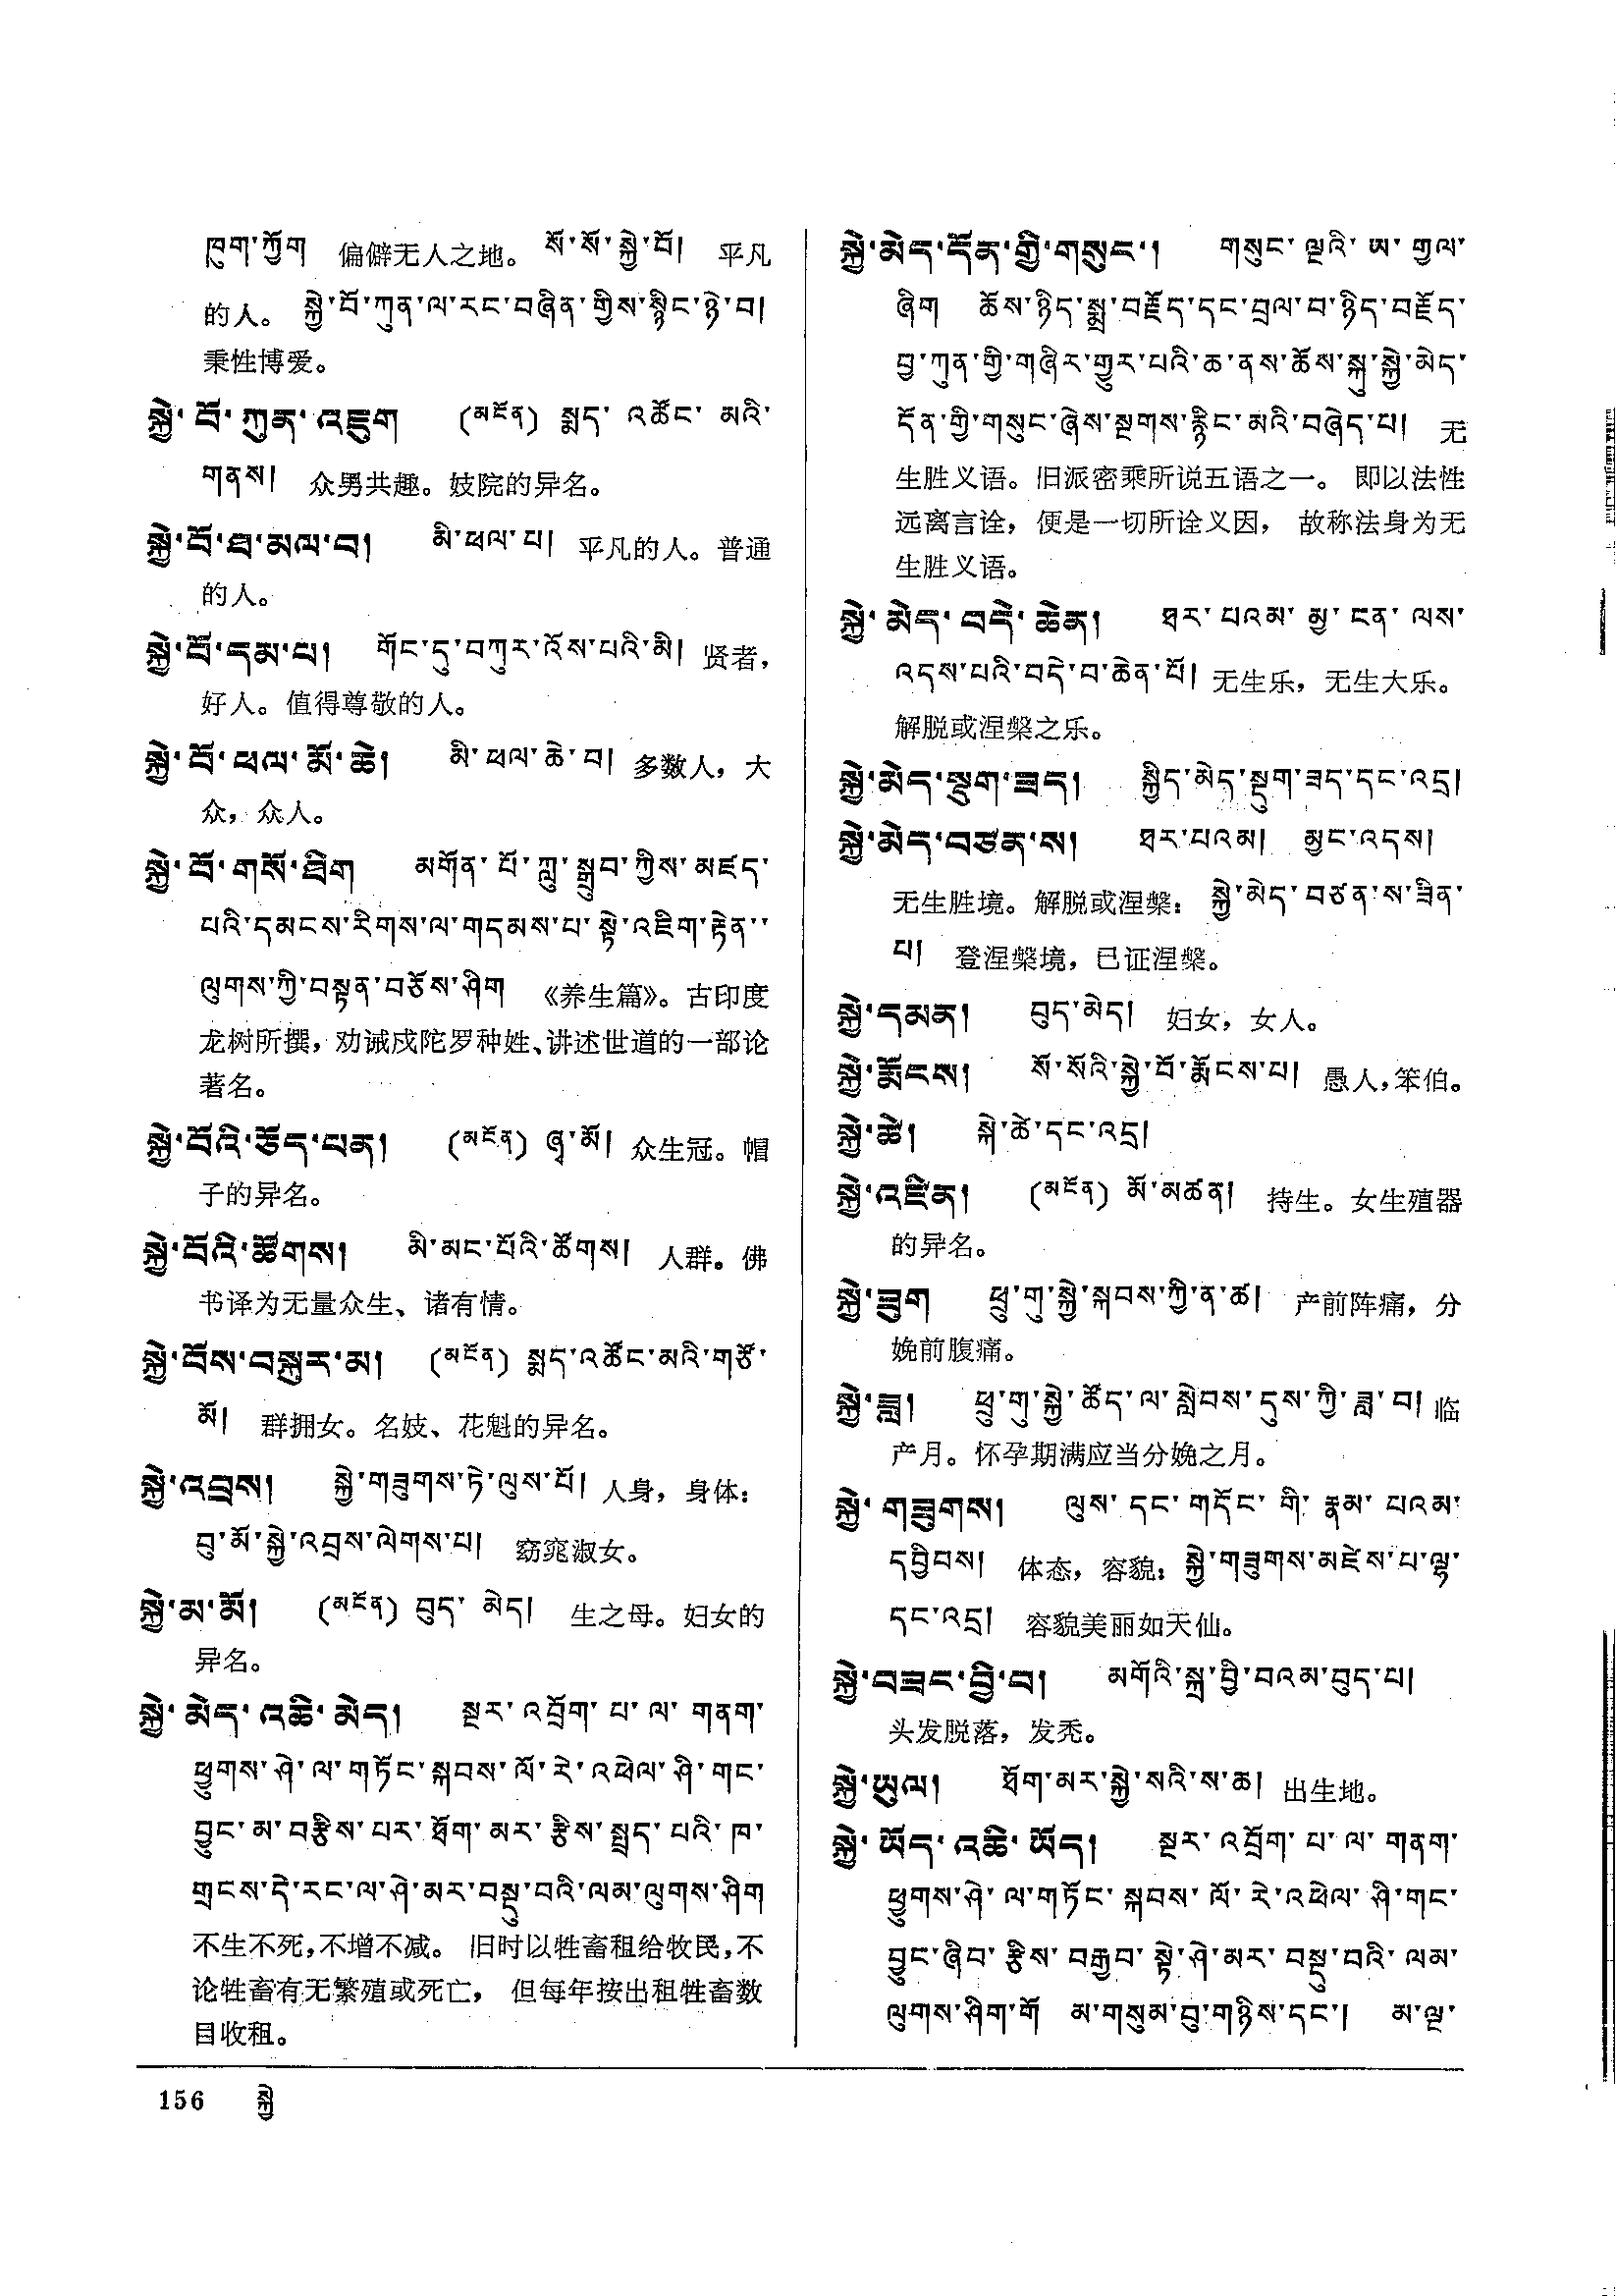 ཁུག་ཀྱོག 偏僻无人之地。 སོ་སོ་སྐྱེ་བོ། 平凡
的人。 སྐྱེ་བོ་ཀུན་ལ་རང་བཞིན་གྱིས་སྙིང་ཉེ་བ།
秉性博爱。
སྐྱེ་བོ་ཀུན་འཇུག (མངོན) སྨད་འཚོང་མའི་
གནས། 众男共趣。妓院的异名。
སྐྱེ་བོ་ཐ་མལ་བ། མི་ཕལ་པ། 平凡的人。普通
的人。
སྐྱེ་བོ་དམ་པ། གོང་དུ་བཀུར་འོས་པའི་མི། 贤者,
好人。值得尊敬的人。
སྐྱེ་བོ་ཕལ་མོ་ཆེ། མི་ཕལ་ཆེ་བ། 多数人，大
众，众人。
སྐྱེ་བོ་གསོ་ཐིག མགོན་པོ་ཀླུ་སྒྲུབ་ཀྱིས་མཛད་
པའི་དམངས་རིགས་ལ་གདམས་པ་སྟེ་འཇིག་རྟེན་་
ལུགས་ཀྱི་བསྟན་བཅོས་ཤིག 《养生篇》。古印度
龙树所撰，劝诫戍陀罗种姓、讲述世道的一部论
著名。
སྐྱེ་བོའི་ཅོད་པན། (མངོན) ཞྭ་མོ། 众生冠。帽
子的异名。
སྐྱེ་བོའི་ཚོགས། མི་མང་པོའི་ཚོགས། 人群。佛
书译为无量众生、诸有情。
སྐྱེ་བོས་བསྐུར་མ། (མངོན) སྨད་འཚོང་མའི་གཙོ་
མོ། 群拥女。名妓、花魁的异名。
སྐྱེ་འབྲས། སྐྱེ་གཟུགས་ཏེ་ལུས་པོ། 人身，身体：
བུ་མོ་སྐྱེ་འབྲས་ལེགས་པ། 窈窕淑女。
སྐྱེ་མ་མོ། (མངོན) བུད་མེད། 生之母。妇女的
异名。
སྐྱེ་མེད་འཆི་མེད། སྔར་འབྲོག་པ་ལ་གནག་
ཕྱུགས་ཤེ་ལ་གཏོང་སྐབས་ལོ་རེ་འཕེལ་ཤི་གང་
བྱུང་མ་བརྩིས་པར་ཐོག་མར་རྩིས་སྤྲད་པའི་ཁ་
གྲངས་དེ་རང་ལ་ཤེ་མར་བསྡུ་བའི་ལམ་ལུགས་ཤིག
不生不死，不增不减。 旧时以牲畜租给牧民，不
论牲畜有无繁殖或死亡， 但每年按出租牲畜数
目收租。
སྐྱེ་མེད་དོན་གྱི་གསུང་། གསུང་ལྔའི་ཨ་གྱལ་
ཞིག ཆོས་ཉིད་སྨྲ་བརྗོད་དང་བྲལ་བ་ཉིད་བརྗོད་
བྱ་ཀུན་གྱི་གཞིར་གྱུར་པའི་ཆ་ནས་ཆོས་སྐུ་སྐྱེ་མེད་
དོན་གྱི་གསུང་ཞེས་སྔགས་རྙིང་མའི་བཞེད་པ། 无
生胜义语。旧派密乘所说五语之一。 即以法性
远离言诠，便是一切所诠义因， 故称法身为无
生胜义语。
སྐྱེ་མེད་བདེ་ཆེན། ཐར་པའམ་མྱ་ངན་ལས་
འདས་པའི་བདེ་བ་ཆེན་པོ། 无生乐，无生大乐。
解脱或涅槃之乐。
སྐྱེ་མེད་སྡུག་ཟད། སྐྱིད་མེད་སྡུག་ཟད་དང་འདྲ།
སྐྱེ་མེད་བཙན་ས། ཐར་པའམ། མྱང་འདས།
无生胜境。解脱或涅槃： སྐྱེ་མེད་བཙན་ས་ཟིན་
པ། 登涅槃境，已证涅槃。
སྐྱེ་དམན། བུད་མེད། 妇女，女人。
སྐྱེ་རྨོངས། སོ་སོའི་སྐྱེ་བོ་རྨོངས་པ། 愚人，笨伯。
སྐྱེ་ཚེ། སྐེ་ཚེ་དང་འདྲ།
སྐྱེ་འཛིན། (མངོན) མོ་མཚན། 持生。女生殖器
的异名。
སྐྱེ་ཟུག ཕྲུ་གུ་སྐྱེ་སྐབས་ཀྱི་ན་ཚ། 产前阵痛，分
娩前腹痛。
སྐྱེ་ཟླ། ཕྲུ་གུ་སྐྱེ་ཚོད་ལ་སླེབས་དུས་ཀྱི་ཟླ་བ། 临
产月。怀孕期满应当分娩之月。
སྐྱེ་གཟུགས། ལུས་དང་གདོང་གི་རྣམ་པའམ་
དབྱིབས། 体态，容貌： སྐྱེ་གཟུགས་མཛེས་པ་ལྷ་
དང་འདྲ། 容貌美丽如天仙。
སྐྱེ་བཟང་བྱི་བ། མགོའི་སྐྲ་བྱི་བའམ་བུད་པ།
头发脱落，发秃。
སྐྱེ་ཡུལ། ཐོག་མར་སྐྱེ་སའི་ས་ཆ། 出生地。
སྐྱེ་ཡོད་འཆི་ཡོད། སྔར་འབྲོག་པ་ལ་གནག་
ཕྱུགས་ཤེ་ལ་གཏོང་སྐབས་ལོ་རེ་འཕེལ་ཤི་གང་
བྱུང་ཞིབ་རྩིས་བརྒྱབ་སྟེ་ཤེ་མར་བསྡུ་བའི་ལམ་
ལུགས་ཤིག་གོ མ་གསུམ་བུ་གཉིས་དང་། མ་ལྔ་
156 སྐྱེ